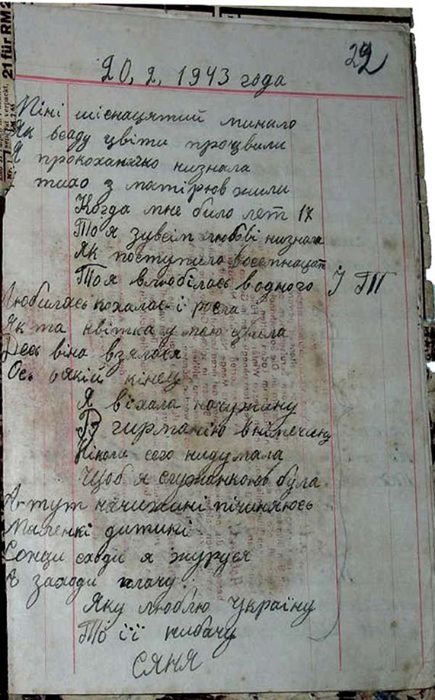 21 für RM 2
22
20, 2, 1943 года
Міні шіснацятий минало
Як всаду цвіти процвили
Я прокоханячко низнала
тихо з матірюв жили
Когда мне било лет 17
То я зувсім любві низнала
Як поступило восемнацат
То я влюбілась водного І ТТ
Любилась кохалас і росла
Як та квітка у полі цвила
Десь війна взялася
Ось який кінец
Я віхала начужину
В гирманію внімечину
Ніколи сего нидумала
Щоб я служанкоюв була
А тут начижині пічиняюсь
Маленкі дитині
Сонци сходи я журуся
А заходи плачу
Яку люблю Україну
То її нибачу
СЯНЯ